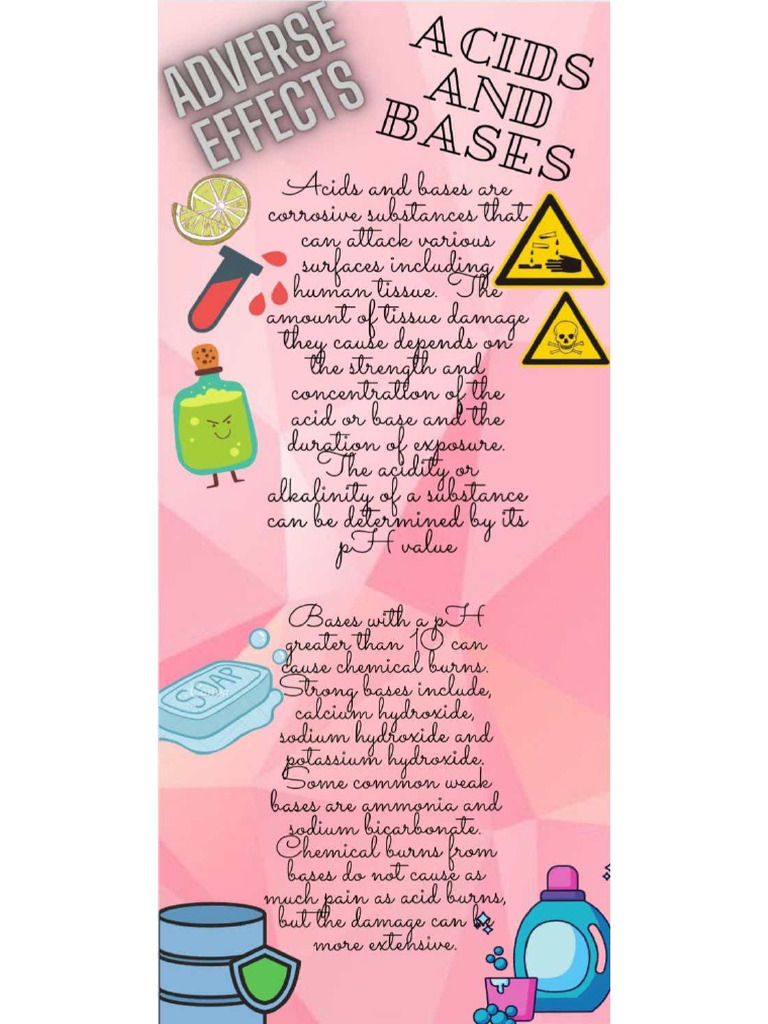 ADVERSE
EFFECTS
ACIDS
AND
BASES
Acids and bases are
corrosive substances that
can attack various
surfaces including
human tissue. The
amount of tissue damage
they cause depends on
the strength and
concentration of the
acid or base and the
duration of exposure.
The acidity or
alkalinity of a substance
can be determined by its
pH value
Bases with a pH
greater than 10 can
cause chemical burns.
Strong bases include,
calcium hydroxide,
sodium hydroxide and
potassium hydroxide.
Some common weak
bases are ammonia and
sodium bicarbonate.
Chemical burns from
bases do not cause as
much pain as acid burns,
but the damage can be
more extensive.
SOAP